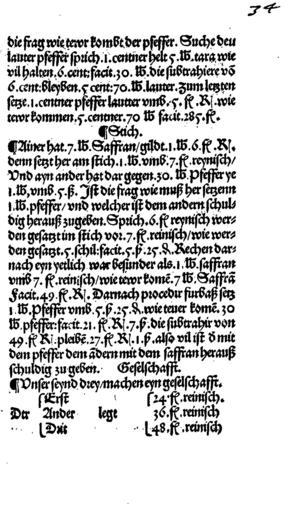 34
die frag wie tewr kombt der pfeffer. Suche deu
lauter pfeffer sprich. 1. centner helt 5. ℔. tara wie
vil halten. 6. cent: facit. 30. ℔. die subtrahiere vō
6. cent: bleyben. 5 cent: 70. ℔. lauter. zum letzten
setze. 1. centner pfeffer lautter vmb. 5. fl. R|. wie
tewr kommen. 5. centner. 70 ℔ facit. 285. fl.
¶Stich.
¶Ainer hat. 7. ℔. Saffran/ gildt. 1. ℔. 6. fl. R|.
denn setzt her am stich. 1. ℔. vmb. 7. fl. reynisch/
Vnd ayn ander hat dar gegen. 30. ℔. Pfeffer ye
1. ℔. vmb. 5. ß. Jst die frag wie muß her setzenn
1. ℔. pfeffer/ vnd welcher ist dem andern schul-
dig herauß zugeben. Sprich. 6. fl reynisch wer-
den gesatzt im stich vor. 7. fl. reinisch/ wie wer-
den gesatzt. 5. schil: facit. 5. ß. 25. ₰. Rechen dar-
nach eyn yetlich war besunder als. 1. ℔. saffran
vmb 7. fl. reinisch/ wie tewr kome. 7 ℔. Saffrā
Facit. 49. fl. R|. Darnach procedur furbaß setz
1. ℔. Pfeffer vmb. 5. ß. 25. ₰. wie teuer komē. 30
℔. pfeffer: facit. 21. fl. R|. 7. ß. die subtrahir von
49. fl. R|. pleibē. 27. fl. R|. 1. ß. also vil ist d mit
dem pfeffer dem ādern mit dem saffran herauß
schuldig zu geben. Geselschafft.
¶Vnser seynd drey/ machen eyn geselschafft.
Erst 24. fl. reinisch.
Der Ander legt 36. fl. reinisch
Drit 48. fl. reinisch